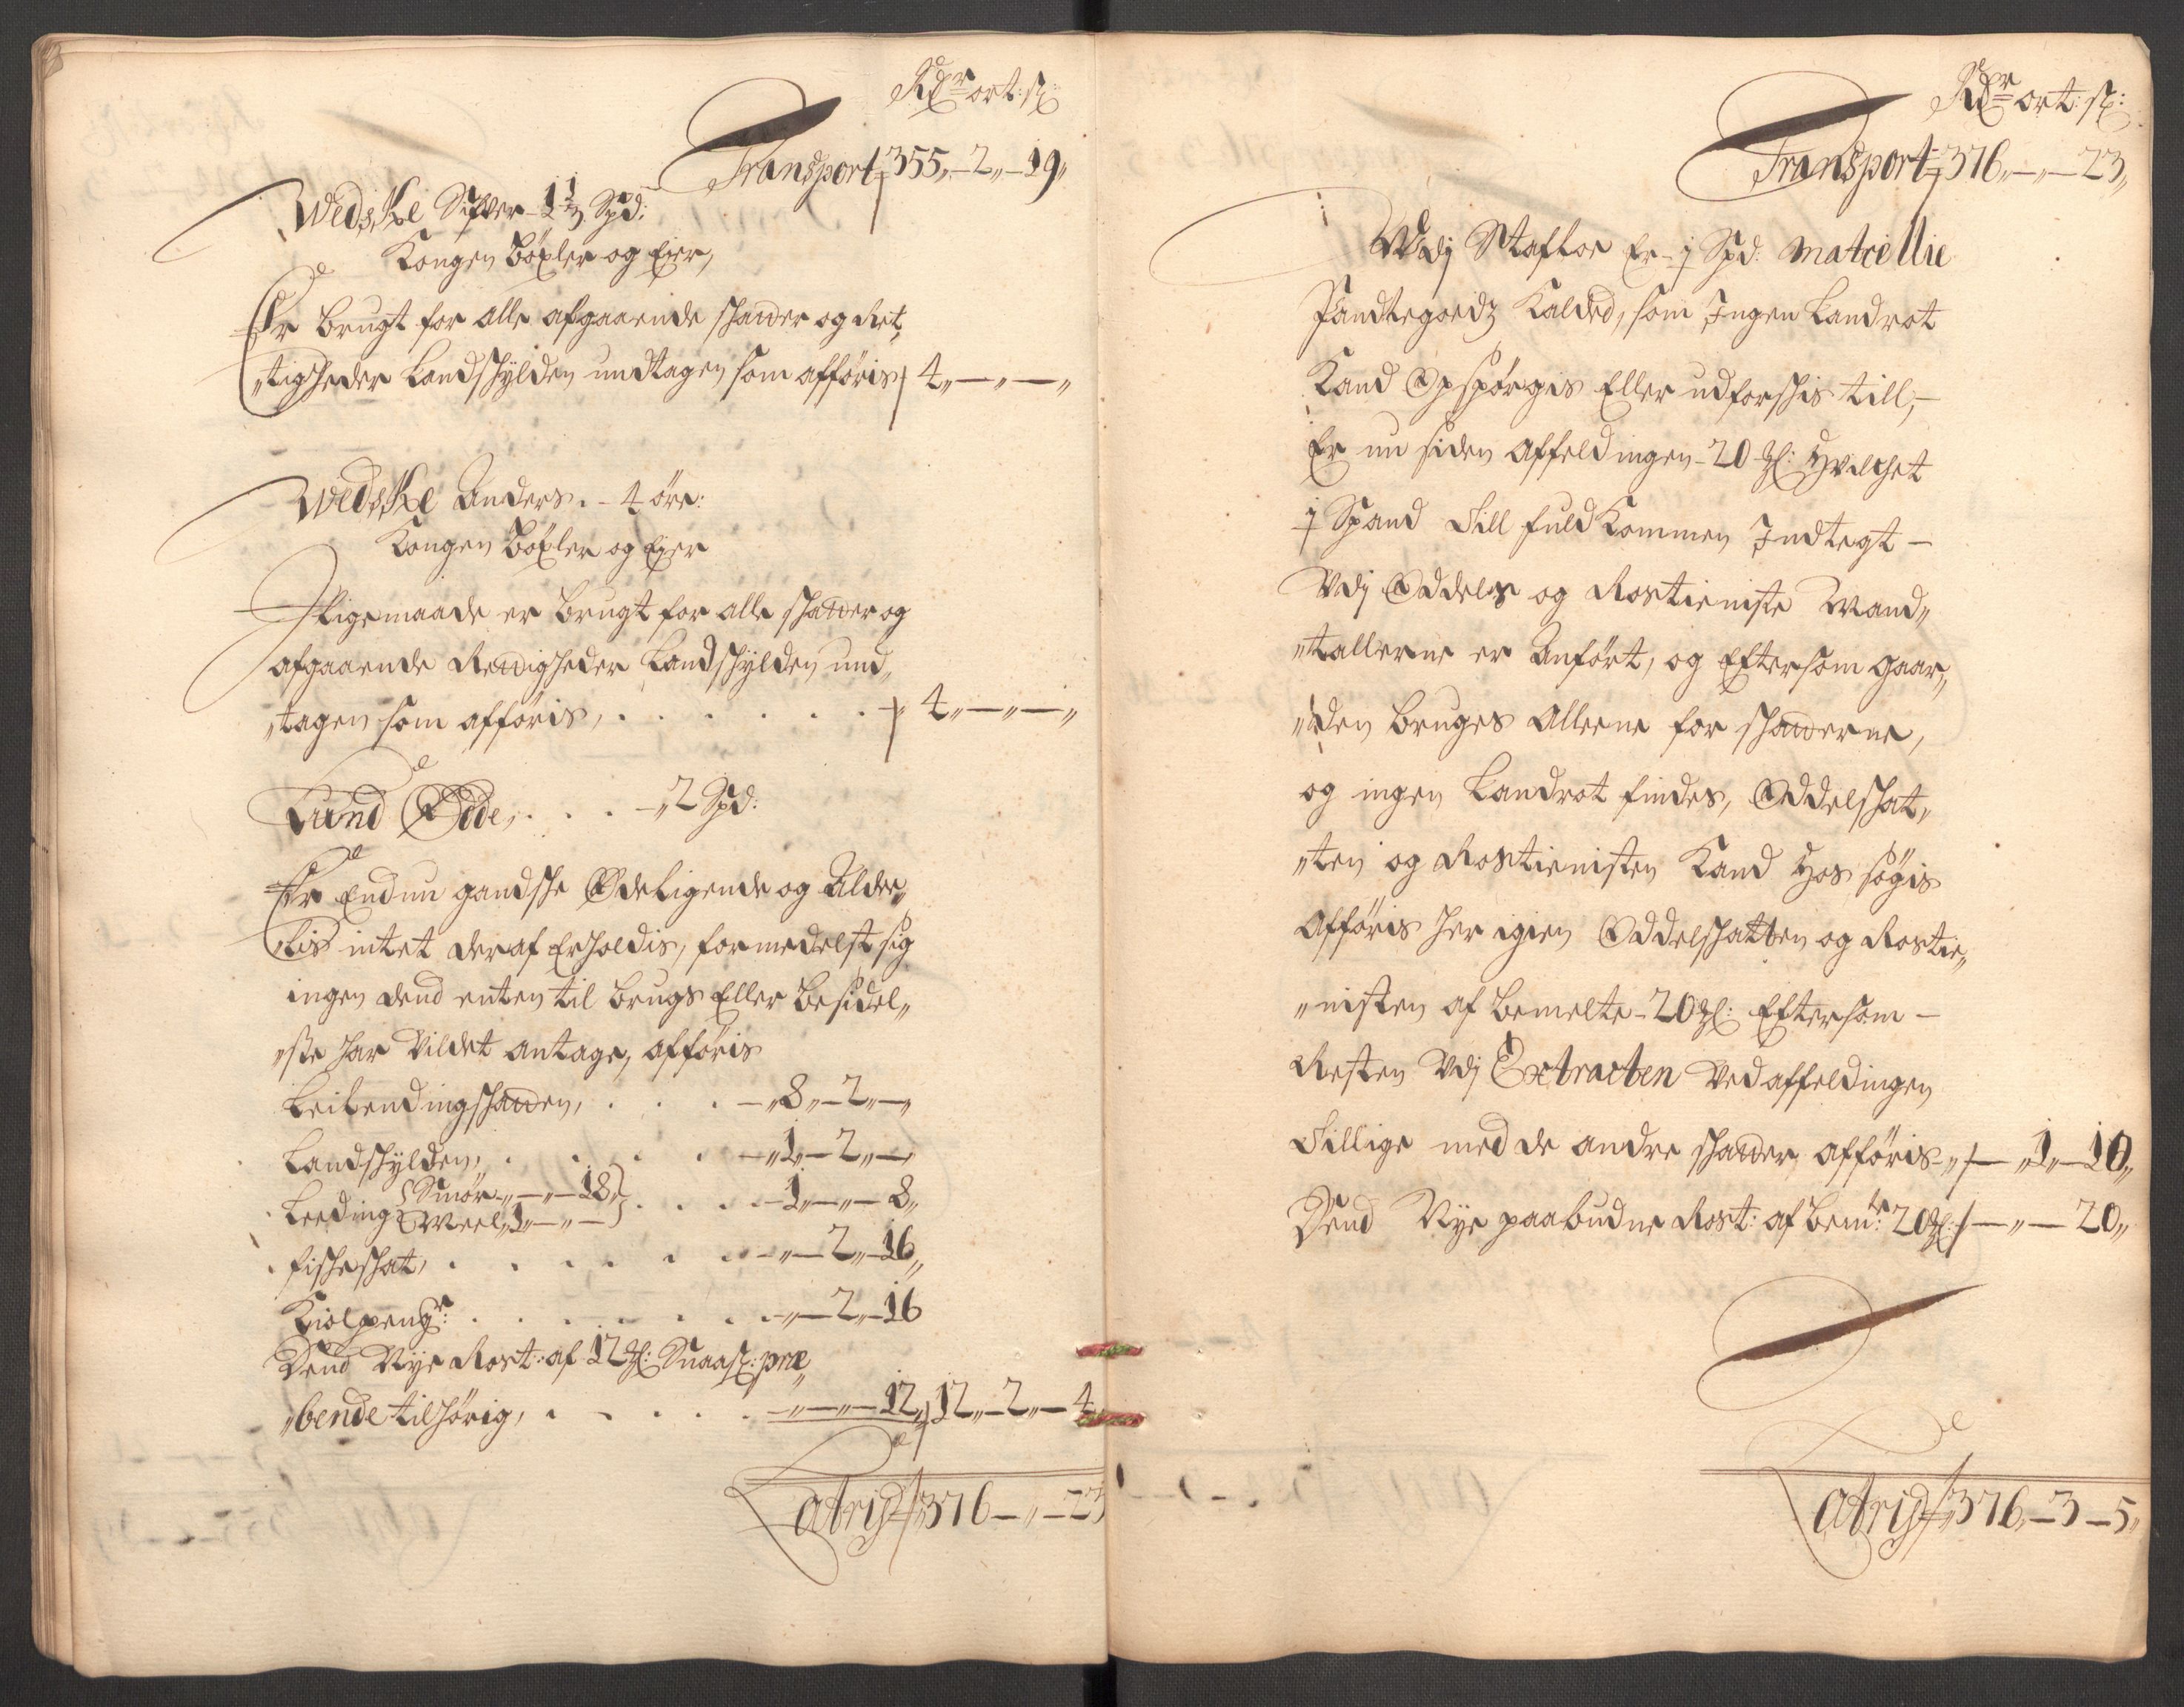 Rdr ort: sk:
Transport 355„-2„-19„
Wedske Sifver - 1½ Spd:
Kongen böxler og Eier,
Er brugt for alle afgaaende schatter og Ret„
„tigheder Landschylden undtagen som afföris 4„-„-„
Wedske Anders. - 4 öre:
Kongen böxler og Eier
J ligemaade er brugt for alle schatter og
afgaaende Rettigheder Landschylden und„
„tagen som afföris, . . . . . . 4„-„-„
Lund Öde, . . . -„2 Spd:
Er Endnu gandsche Ödeligende og Aldee„
„lis intet deraf Erholdis, formedelst sig
ingen dend enten til brugs Eller besidel„
„sse har Vildet antage, afföris
Leilendingschatten, . . . -„8„-2„-„
Landschylden, . . . . -„1„-2„-„
Leeding { Smör „-„-18„ } . . . -1„-„-8„
Meel „1„-„-
fischeschat, . . . . . . -„-2„-16„
Kiolpengr: . . . . . . -„-2„-16
Dend Nye Rost: af 12 Mk: Snaass: præ„
„bende tilhörig, . . . . . -„-„-12„ 12„-2„-4
Latris 376-„-23
Rdr ort: sk:
Transport 376„-„-23„
Vdj Stafloe Er - j Spd: Matcellie
Pandtegoedz Kalded, som Ingen Landrot
Kand Opspörgis Eller udforschis till,-
Er nu siden affeldingen - 20 Mk: Hvilchet
j Spand till fuldkommen Indtegt -
Vdj Oddels og Rostieniste Mand„
„tallerne er Anfört, og Eftersom gaar„
„den bruges Alleene for schatterne,
og ingen Landrot findes, Oddelschat„
„ten og Rostienisten Kand Hos sögis
Afföris her igien Oddelschatten og Rostie„
„nisten af bemelte - 20 Mk: Eftersom -
Resten Vdj Extracten Ved affeldingen
Tillige med de andre schatter afföris „-„1„-10„
Dend Nye paabudne Rost: af bemte: 20 Mk: -„-20„
Latris 376„-3-5„